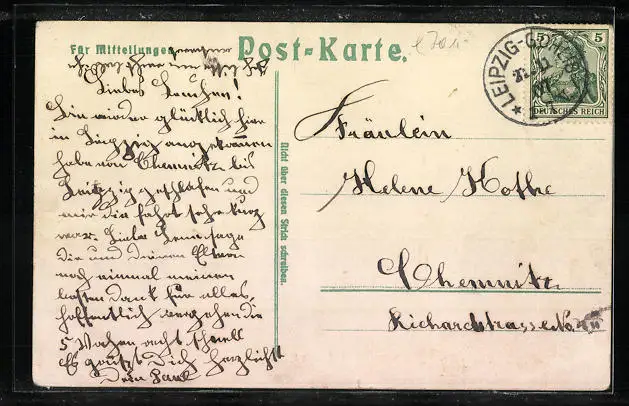 Für Mitteilungen
Post-Karte.
Liebes Lenchen!
Bin wieder glücklich hier
in Leipzig angekommen
habe von Chemnitz bis
Leipzig geschlafen und
mir die fahrt sehr kurz
war. Liebe Lene sage
die und deinen Eltern
noch einmal meinen
besten Dank für alles,
hoffentlich vergehen die
5 Wochen recht schnell
Es grüßt Dich herzlichst
Dein Paul
Nicht über diesen Strich schreiben.
LEIPZIG-GOHLIS
5 5
DEUTSCHES REICH
Fräulein
Helene Kothe
Chemnitz
Richardstrasse No